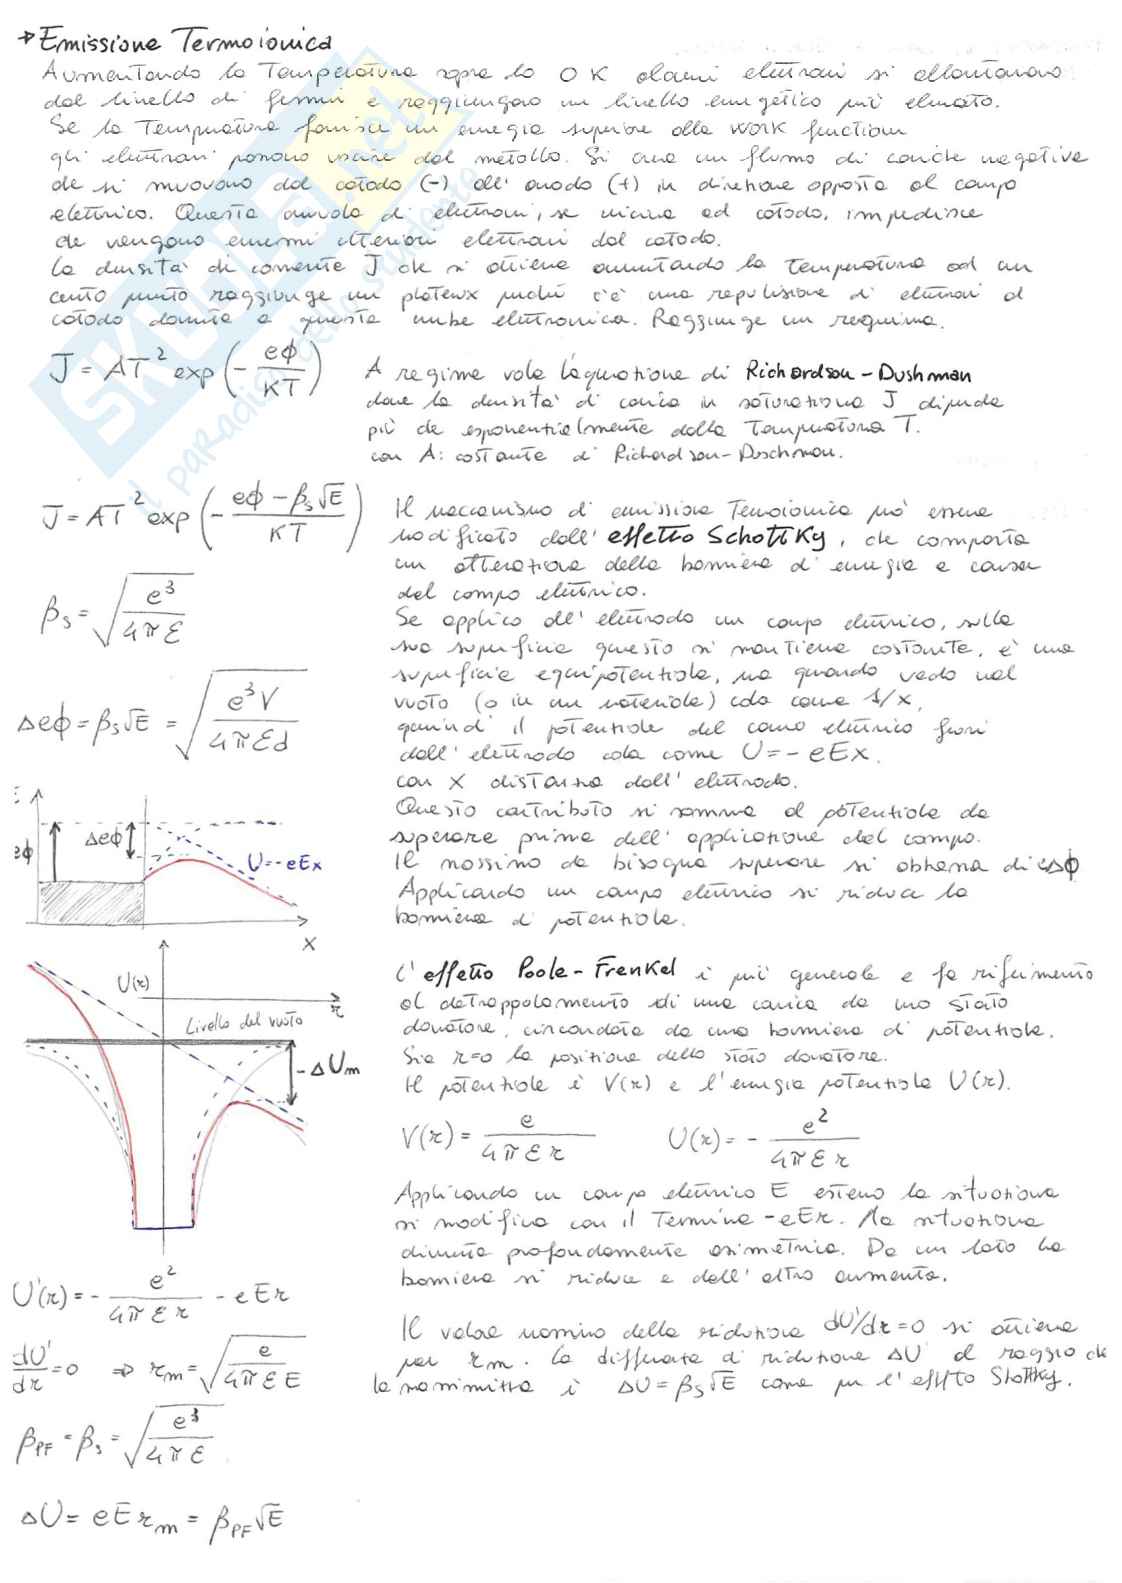 → Emissione Termoionica
Aumentando la Temperatura sopra lo 0 K alcuni elettroni si allontanano
dal livello di fermi e raggiungono un livello energetico più elevato.
Se la Temperatura fornisce un energia superiore alla work function
gli elettroni possono uscire dal metallo. Si crea un flusso di cariche negative
che si muovono dal catodo (-) all' anodo (+) in direzione opposta al campo
elettrico. Questa nuvola di elettroni, se vicina ad catodo, impedisce
che vengano emessi ulteriori elettroni dal catodo.
La densità di corrente J che si ottiene aumentando la Temperatura ad un
certo punto raggiunge un plateux poiché c'è una repulsione di elettroni al
catodo dovuta a questa nube elettronica. Raggiunge un regime.
J = AT² exp(- eϕ / KT)
A regime vale l'equazione di Richardson-Dushman
dove la densità di carica in saturazione J dipende
più che esponenzialmente dalla Temperatura T.
con A: costante di Richardson-Duschman.
J = AT² exp(- (eϕ - βs√E) / KT)
βs = √(e³ / 4πε)
Δeϕ = βs√E = √(e³V / 4πεd)
Il meccanismo di emissione Termoionica può essere
modificato dall' effetto Schottky, che comporta
un alterazione della barriera di energia a causa
del campo elettrico.
Se applico all' elettrodo un campo elettrico, sulla
sua superficie questo si mantiene costante, è una
superficie equipotenziale, ma quando vado nel
vuoto (o in un materiale) cala come 1/x,
quindi il potenziale del campo elettrico fuori
dall' elettrodo cala come U = - eEx.
con x distanza dall' elettrodo.
Questo contributo si somma al potenziale da
superare prima dell' applicazione del campo.
Il massimo da bisogna superare si abbassa di eΔϕ
Applicando un campo elettrico si riduce la
barriera di potenziale.
E
eϕ
Δeϕ
U=-eEx
x
U(r)
r
Livello del vuoto
-ΔUm
L' effetto Poole-Frenkel è più generale e fa riferimento
al detrappolamento di una carica da uno stato
donatore, circondata da una barriera di potenziale.
Sia r=0 la posizione dello stato donatore.
Il potenziale è V(r) e l'energia potenziale U(r).
V(r) = e / 4πεr   U(r) = - e² / 4πεr
Applicando un campo elettrico E esterno la situazione
si modifica con il Termine -eEr. La situazione
diventa profondamente asimmetrica. Da un lato la
barriera si riduce e dall' altro aumenta.
U'(r) = - e² / 4πεr - eEr
dU'/dr = 0 ⇒ rm = √(e / 4πεE)
βPF = βs = √(e³ / 4πε)
ΔU = eErm = βPF√E
Il valore massimo della riduzione dU'/dr=0 si ottiene
per rm. La differenza di riduzione ΔU al raggio che
la massimizza è ΔU = βs√E come per l'effetto Shottky.
SKUOLA.net
il paradiso dello studente